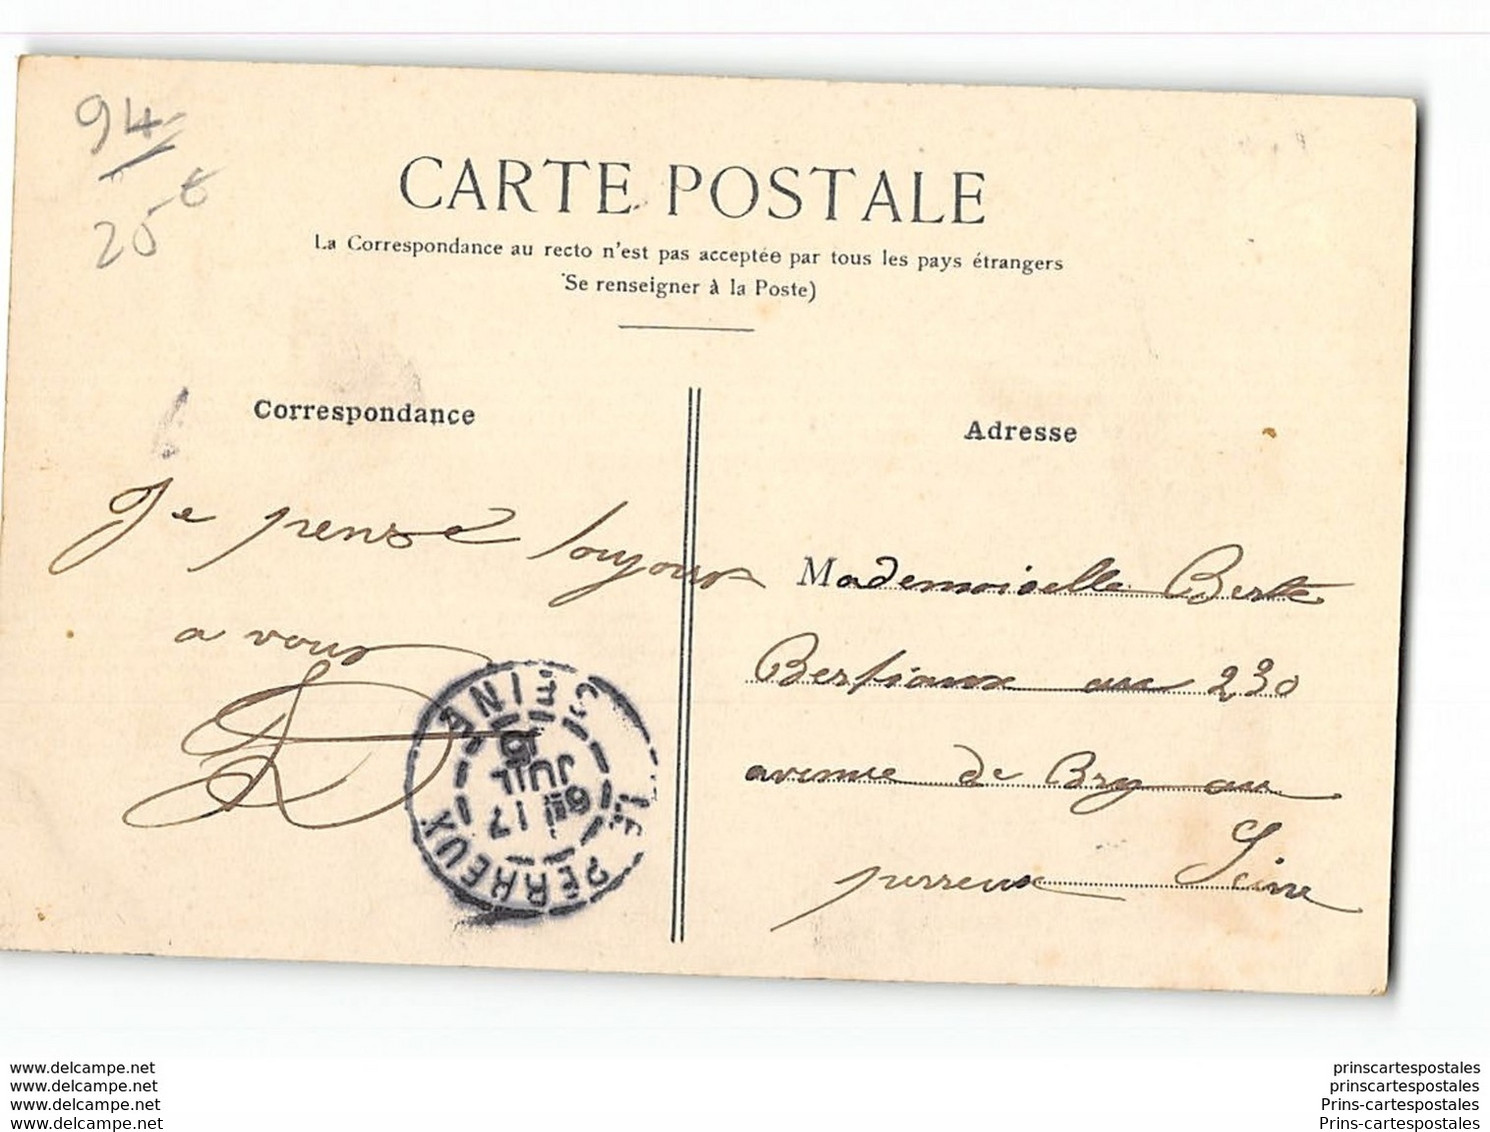 94
25 €
CARTE POSTALE
La Correspondance au recto n'est pas acceptée par tous les pays étrangers
Se renseigner à la Poste)
Correspondance
Je pense toujours
a vous
Adresse
Mademoiselle Berte
Bertiaux au 230
avenue de Bry au
perreux Seine
LE PERREUX
SEINE
6E 17
JUIL
www.delcampe.net
www.delcampe.net
www.delcampe.net
www.delcampe.net
prinscartespostales
prinscartespostales
Prins-cartespostales
Prins-cartespostales